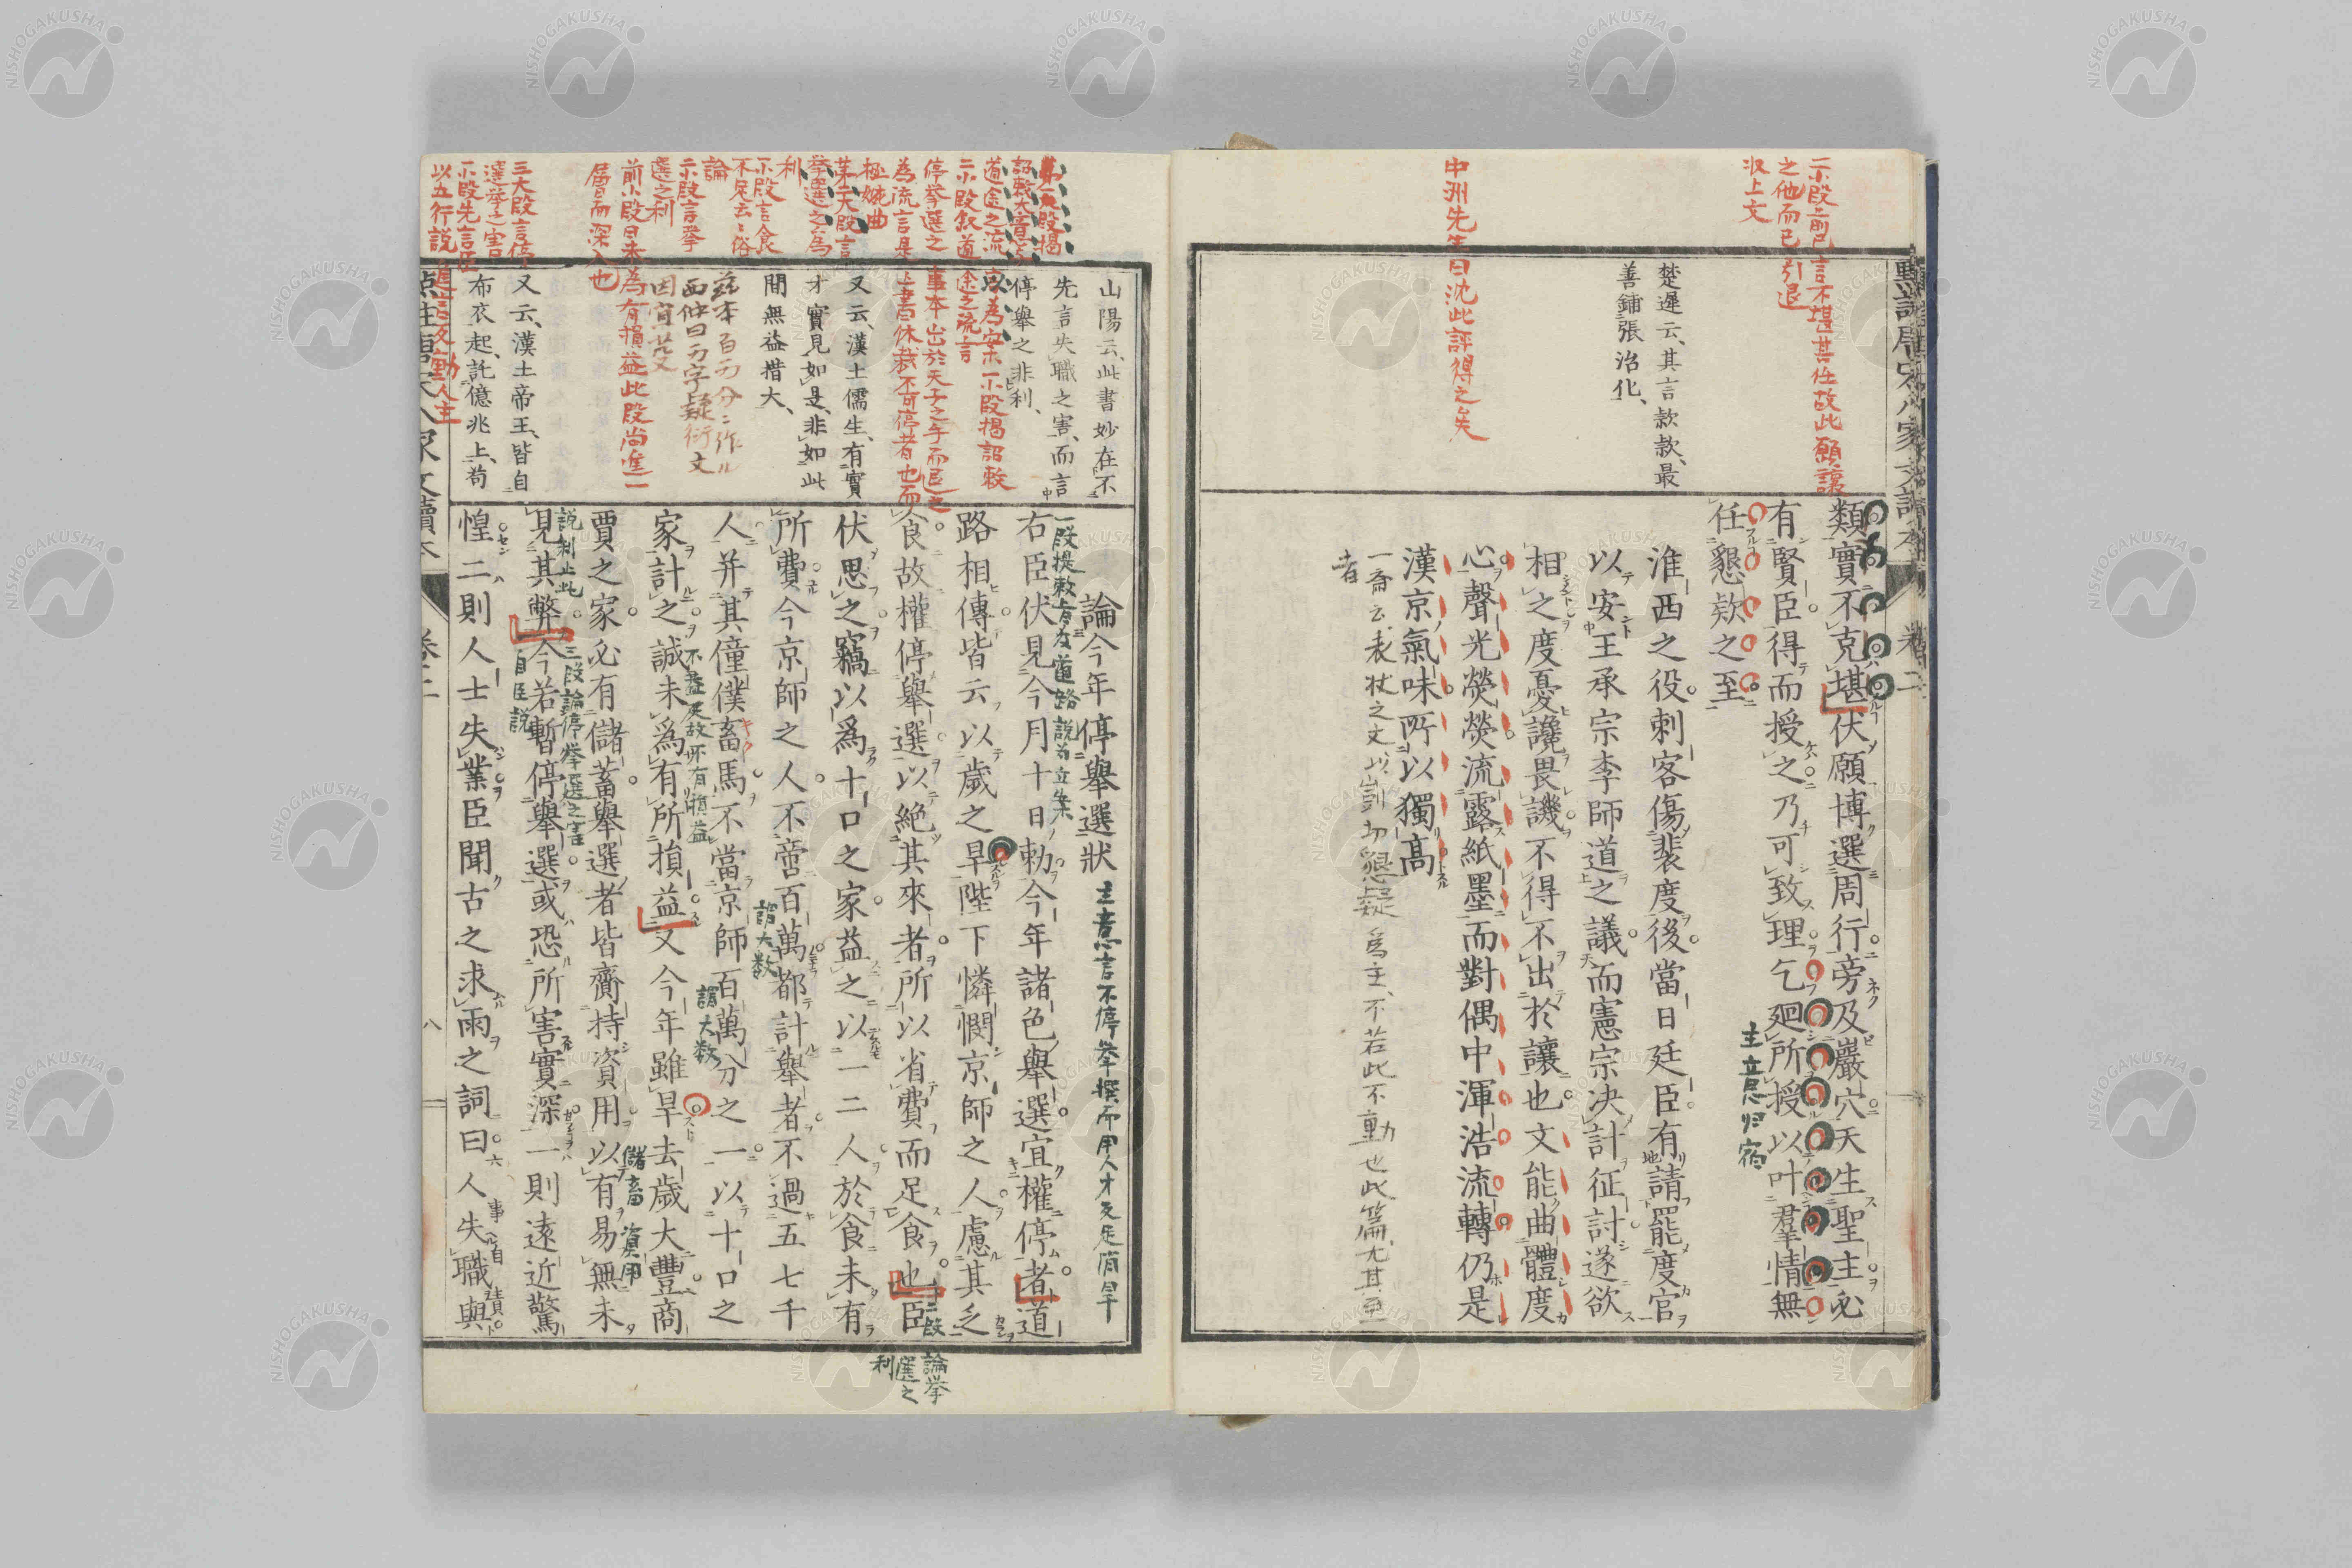 類實不克堪伏願博選周行旁及巖穴天生聖主必
有賢臣得而授之乃可致理乞廻所授以叶羣情無
任懇款之至
淮西之役刺客傷裴度後當日廷臣有請罷度官
以安王承宗李師道之議而憲宗決計征討遂欲
相之度憂讒畏譏不得不出於讓也文能曲體度
心聲光熒熒流露紙墨而對偶中渾浩流轉仍是
漢京氣味所以獨高
一斎云表状之文以剴切懇疑為主不若此不動也此篇尤其至
者
主意归宿
二小段前已言不堪其任故此願讓
之他而已引退
収上文
楚遲云、其言款款、最
善鋪張治化、
中洲先生曰沈此評得之矣
論今年停舉選狀
主意言不停挙撰而用人才足消旱
一段提敕方及道路說为立案
右臣伏見今月十日勅今年諸色舉選宜權停者道
路相傳皆云以歲之旱陛下憐憫京師之人慮其乏
食故權停舉選以絕其來者所以省費而足食也臣
二段
論挙
選之
利
伏思之竊以爲十口之家益之以一二人於食未有
所費今京師之人不啻百萬都計舉者不過五七千
謂大数
人并其僮僕畜馬不當京師百萬分之一以十口之
謂大数
家計之誠未爲有所損益又今年雖旱去歲大豐商
賈之家必有儲蓄舉選者皆齎持資用以有易無未
儲畜 資用
說利止此
見其弊今若暫停舉選或恐所害實深一則遠近驚
三段論停挙選之害
自臣說
惶二則人士失業臣聞古之求雨之詞曰人失職與
山陽云、此書妙在不
先言失職之害、而言
停舉之非利、
又云、漢土儒生、有實
才實見、如是、非如此
間無益措大、
又云、漢土帝王、皆自
布衣起、託億兆上、苟
第一大段揭
詔敕大意
道途之流言以為案一小段揭詔敕
二小段叙道途之流言
停挙選之事本出於天子之手而臣之
為流言是上書体裁不可停者也而
極婉曲
第二大段言
挙選之為
利
一小段言食
不足云々俗
論
二小段言挙
選之利
前小段曰未為有損益此段尚進一
層而深入也
三大段言停
選挙之害
一小段先言臣
以五行説
八